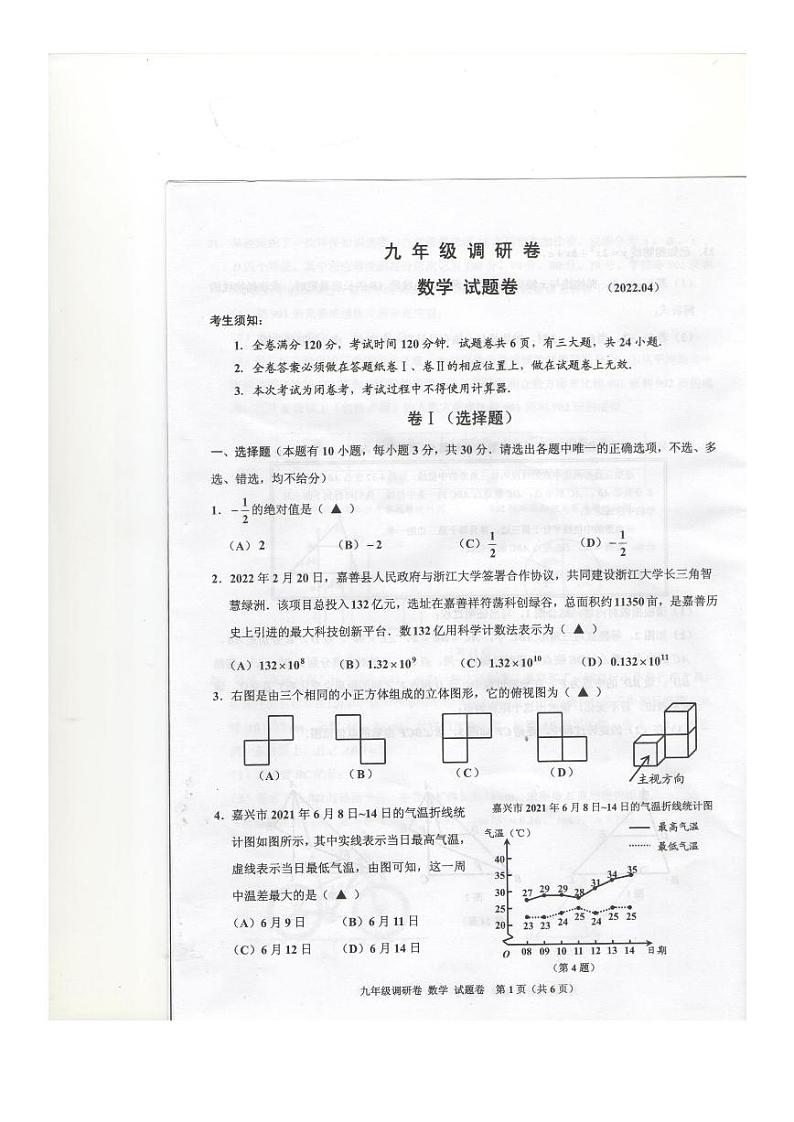 九 年 级 调 研 卷
数学 试题卷 (2022.04)
考生须知：
1. 全卷满分 120 分，考试时间 120 分钟. 试题卷共 6 页，有三大题，共 24 小题.
2. 全卷答案必须做在答题纸卷Ⅰ、卷Ⅱ的相应位置上，做在试题卷上无效.
3. 本次考试为闭卷考，考试过程中不得使用计算器.
卷Ⅰ（选择题）
一、选择题（本题有 10 小题，每小题 3 分，共 30 分. 请选出各题中唯一的正确选项，不选、多
选、错选，均不给分）
1. $-\frac{1}{2}$ 的绝对值是（ ▲ ）
(A) 2 (B) -2 (C) $\frac{1}{2}$ (D) $-\frac{1}{2}$
2. 2022 年 2 月 20 日，嘉善县人民政府与浙江大学签署合作协议，共同建设浙江大学长三角智
慧绿洲. 该项目总投入 132 亿元，选址在嘉善祥符荡科创绿谷，总面积约 11350 亩，是嘉善历
史上引进的最大科技创新平台. 数 132 亿用科学计数法表示为（ ▲ ）
(A) $132×10^{8}$ (B) $1.32×10^{9}$ (C) $1.32×10^{10}$ (D) $0.132×10^{11}$
3. 右图是由三个相同的小正方体组成的立体图形，它的俯视图为（ ▲ ）
(A) (B) (C) (D) 主视方向
4. 嘉兴市 2021 年 6 月 8 日~14 日的气温折线统
计图如图所示，其中实线表示当日最高气温，
虚线表示当日最低气温，由图可知，这一周
中温差最大的是（ ▲ ）
(A) 6 月 9 日 (B) 6 月 11 日
(C) 6 月 12 日 (D) 6 月 14 日
嘉兴市 2021 年 6 月 8 日~14 日的气温折线统计图
气温（℃） 最高气温
最低气温
40
35
30
25
20
27 29 29 28 31 34 35
23 23 24 25 24 25 25
O 08 09 10 11 12 13 14 日期
（第 4 题）
九年级调研卷 数学 试题卷 第 1 页（共 6 页）